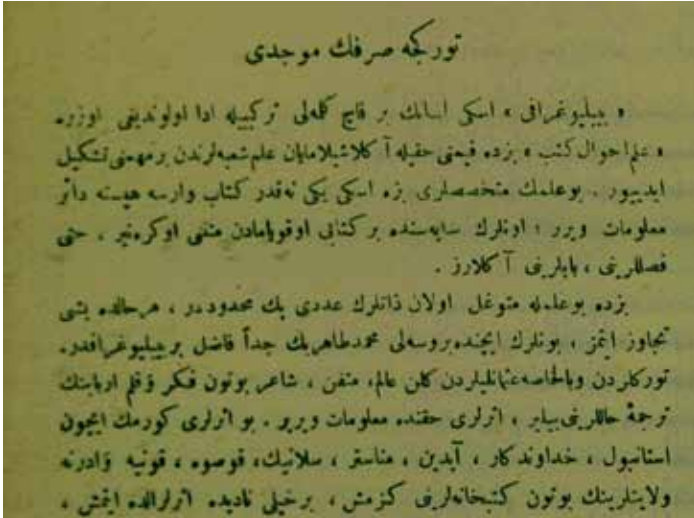 تورکجه صرفك موجدی
« بيبليوغرافی » اسكی لسانك بر قاچ كلمه‌لی تركيبيله ادا اولوندیغی اوزره
« علم احوال كتب » بزده قيمتی حقيله آ كلاشيلامايان علم شعبه‌لرندن برمهمنی تشكيل
ايدييور . بوعلمك متخصصلری بزه اسكی يكی نه‌قدر كتاب وارسه هپسنه دائر
معلومات ويرر ؛ اونلرك سايه‌سنده بر كتابی اوقويامادن متنی اوكره‌نير ، حتی
فصللرينی ، بابلرينی آ كلارز .
بزده بوعلمله متوغل اولان ذاتلرك عددی پك محدوددر ، هرحالده بشی
تجاوز ايتمز ، بونلرك ايچنده بروسه‌لی محمدطاهربك جداً فاضل بر بيبليوغرافدر.
توركلردن وبالخاصه عثمانليلردن كلن عالم، متفنن ، شاعر بوتون فكر وقلم اربابنك
ترجمهٔ حاللرينی بيلير ، اثرلری حقنده معلومات ويرير . بو اثرلری كورمك ايچون
استانبول ، خداوندكار ، آيدين ، مناستر ، سلانيك، قوصوه ، قونيه وادرنه
ولايتلرينك بوتون كتبخانه‌لرينی كزمش ، برخيلی ناديده اثرلرالده ايتمش ،